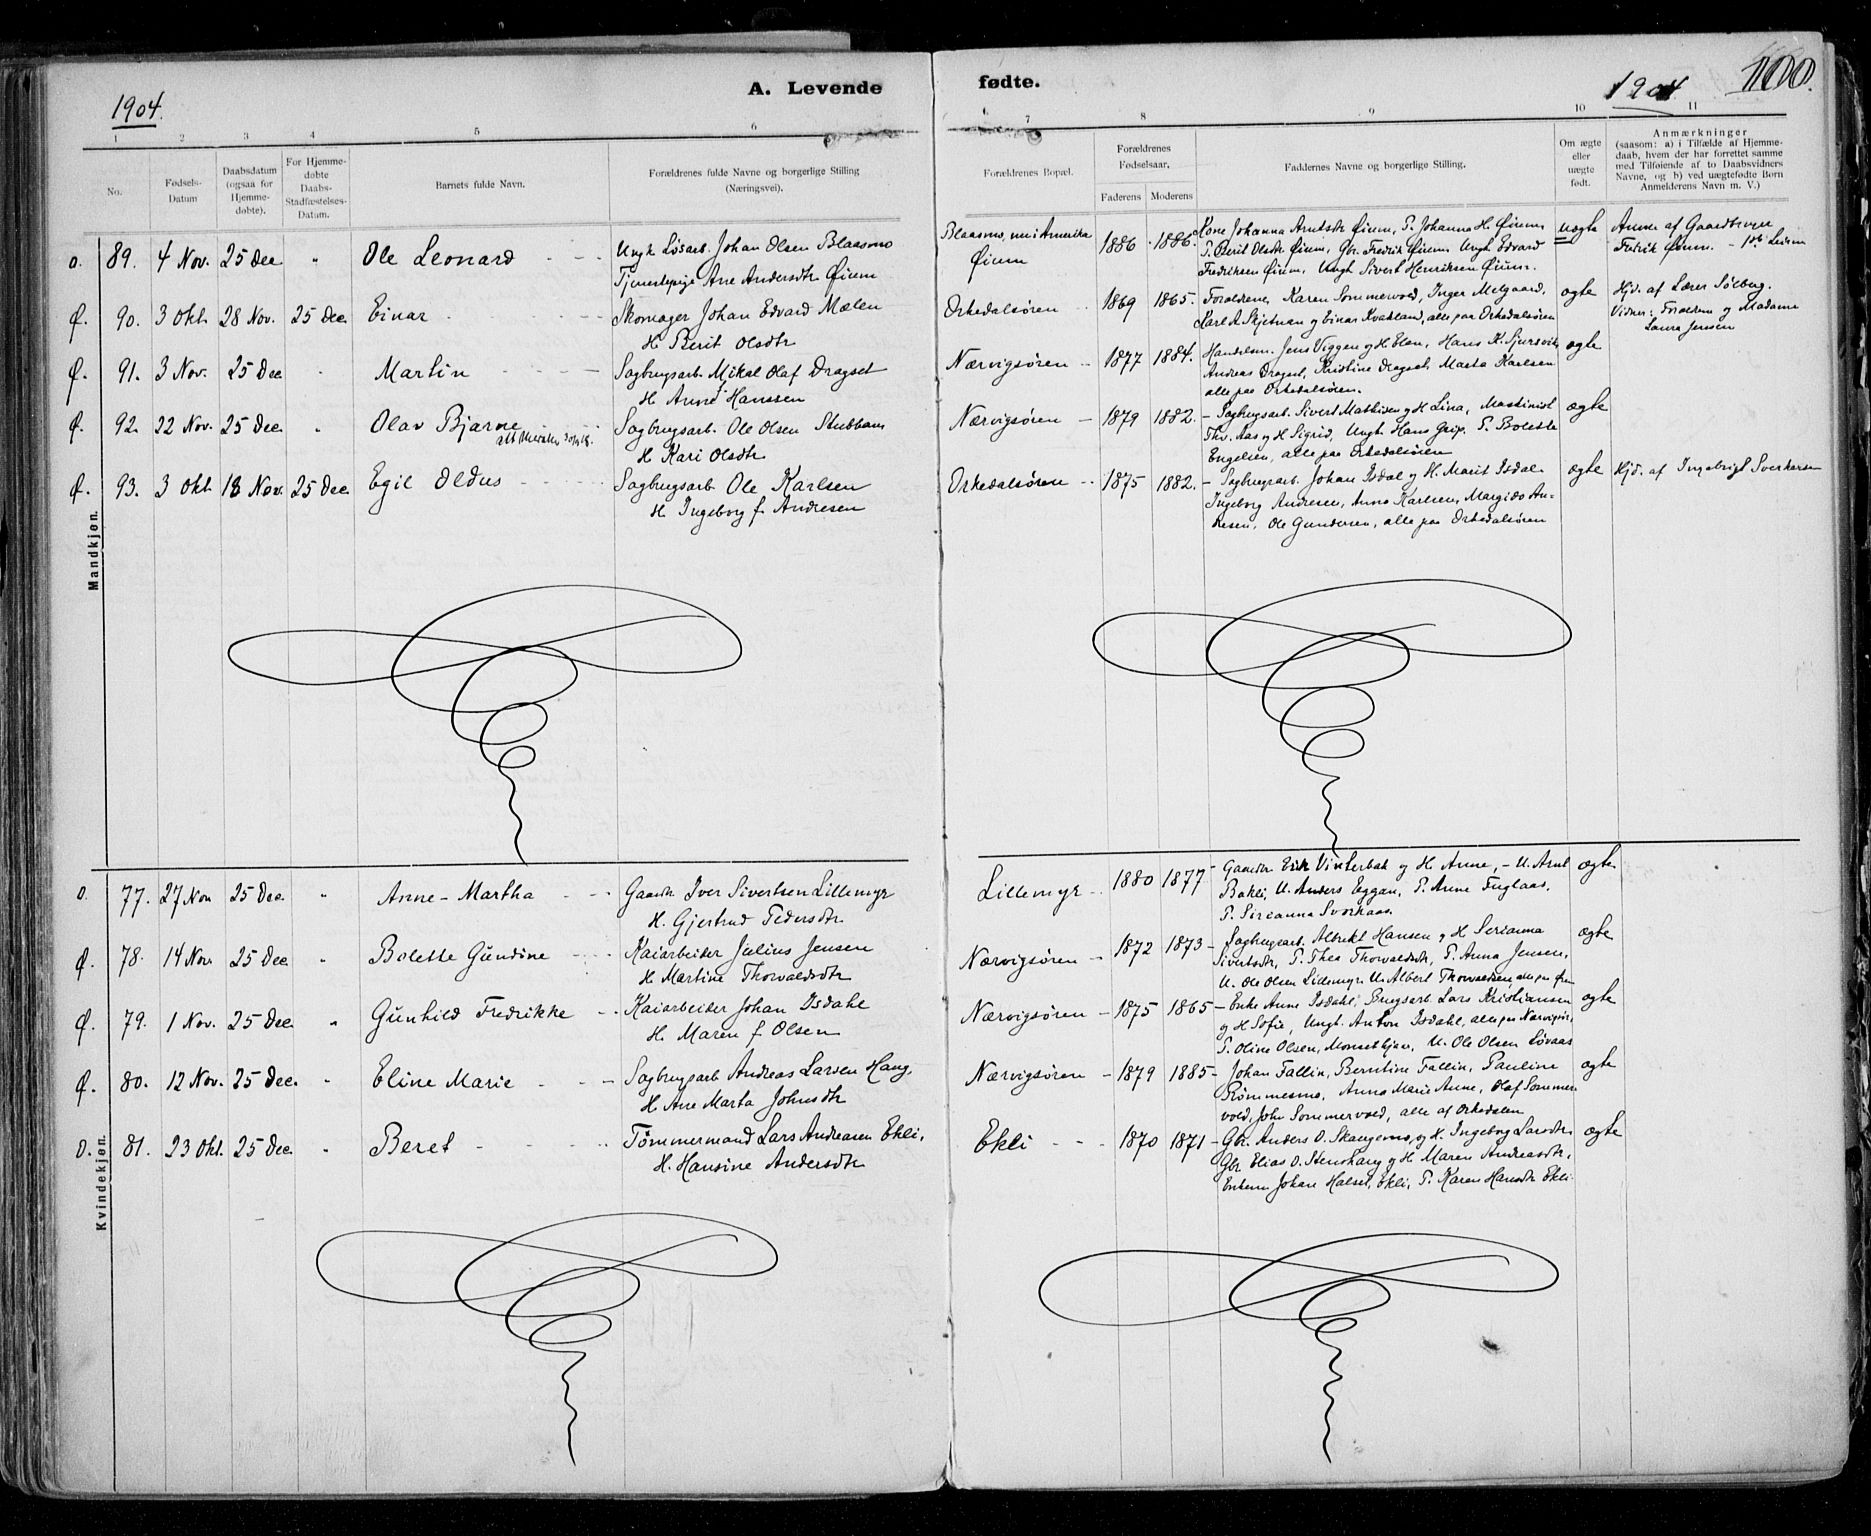 1904.
A. Levende
fødte.
1904
100.
1 2 3 4 5 6
6 7 8 9 10 11
No.
Fødsels-
Datum
Daabsdatum
(ogsaa for
Hjemme-
døbte).
For Hjemme-
døbte
Daabs-
Stadfæstelses-
Datum.
Barnets fulde Navn.
Forældrenes fulde Navne og borgerlige Stilling
(Næringsvei).
Forældrenes Bopæl.
Forældrenes
Fødselsaar.
Faderens Moderens
Faddernes Navne og borgerlige Stilling.
Om ægte
eller
uægte
født.
Anmærkninger
(saasom: a) i Tilfælde af Hjemme-
daab, hvem der har forrettet samme
med Tilføiende af to Daabsvidners
Navne, og b) ved uægtefødte Børn
Anmelderens Navn m. V.)
Mandkjøn.
O. 89. 4 Nov. 25 Dec " Ole Leonard
Ungk. Løsarb. Johan Olsen Blaasmo
Tjenestepige Ane Andersdtr Øium
Blaasmo, nu i Amerika
Øium
1886 1886.
Kone Johanna Arntsdtr Øium, P. Johanna H. Øium,
P. Berit Olsdtr Øium, Gbr. Fredrik Øium, Ungk. Edvard
Fredriksen Øium, Ungk. Sivert Henriksen Øium.
uægte
Anm. af Gaardbruger
Fredrik Øium.
Ø. 90. 3 Okt. 28 Nov. 25 Dec. Einar
Skomager Johan Edvard Mælen
H. Berit Olsdtr
Orkedalsøren
1869 1865.
Forældrene, Karen Sommervold, Inger Melgaard,
Karl A. Skjetnan og Einar Kvakland, alle paa Orkedalsøren
ægte
Hjd. af Lærer Sølberg.
Vidner: Forældrene og Madame
Laura Jensen
Ø. 91. 3 Nov. 25 Dec " Martin
Sagbrugsarb. Mikal Olaf Dragset
H. Anne f. Hanssen
Nærvigsøren
1877 1884.
Handelsm. Jens Viggen og H. Elen, Hans K. Sjursvik,
Andreas Dragset, Kristine Dragset, Marta Karlsen
alle paa Orkedalsøren.
ægte
Ø. 92. 22 Nov. 25 Dec. " Olav Bjarne
Sagbrugsarb. Ole Olsen Stubban
H. Kari Olsdtr
Nærvigsøren
1879 1882.
Sagbrugsarb. Sivert Mathisen og H. Lina, Maskinist
Thv. Aas og H. Sigrid, Ungk. Hans Grip, P. Bolette
Engelien, alle paa Orkedalsøren
ægte
Ø. 93. 3 Okt 18 Nov. 25 Dec. Egil Oldus
Sagbrugsarb. Ole Karlsen
H. Ingeborg f. Andresen
Orkedalsøren
1875 1882.
Sagbrugsarb. Johan Isdal og H. Marit Isdal
Ingeborg Andresen, Anna Karlsen, Margido An-
dresen, Ole Gundersen, alle paa Orkedalsøren
ægte
Hjd. af Ingebrigt Sverkersen
Kvindekjøn.
O. 77. 27 Nov 25 Dec. " Anne-Martha
Gaardbr Iver Sivertsen Lillemyr
H. Gjertrud Pedersdtr
Lillemyr
1880 1877
Gaardbr Erik Vinterbak og H. Anne, U. Arnt
Bakli, U. Anders Eggan, P. Anne Fuglaas,
P. Sirianna Svorkaas.
ægte
Ø. 78. 14 Nov. 25 Dec. " Bolette Gundine
Kaiarbeider Julius Jensen
H. Martine Thorvaldsdtr
Nærvigsøren
1872 1873
Sagbrugsarb. Albrikt Hansen og H. Serianna
Sivertsdtr, P. Thea Thorvaldsdtr, P. Anna Jensen,
U. Ole Olsen Lillemyr U. Albert Thorvaldsen alle paa Øren
ægte
Ø. 79. 1 Nov. 25 Dec. " Gunhild Fredrikke
Kaiarbeider Johan Isdahl
H. Maren f. Olsen
Nærvigsøren
1875 1865
Enke Anne Isdahl, Brugsarb. Lars Kristiansen
og H. Sofie, Ungk. Anton Isdahl, alle paa Nærvigsør,
P. Oline Olsen, U. Ole Olsen Løvaas
ægte
Ø. 80. 12 Nov. 25 Dec. " Eline Marie
Sagbrugsarb. Andreas Larsen Haug,
H. Ane Marta Johnsdtr
Nærvigsøren
1879 1885
Johan Fallin, Berntine Fallin, Pauline
Rømmesmo, Anna Marie Aune, Olaf Sommer
vold, John Sommervold, alle af Orkedalen
ægte
O. 81. 23 Okt. 25 Dec. " Beret
Tømmermand Lars Andreasen Ekli,
H. Hansine Andersdtr
Ekli
1870 1871
Gbr. Anders O. Skaugemo, og H. Ingeborg Larsdtr,
Gbr Elias O. Stenshaug og H. Maren Andreasdtr,
Enkem. Johan Halset, Ekli, P. Karen Hansdtr Ekli.
ægte